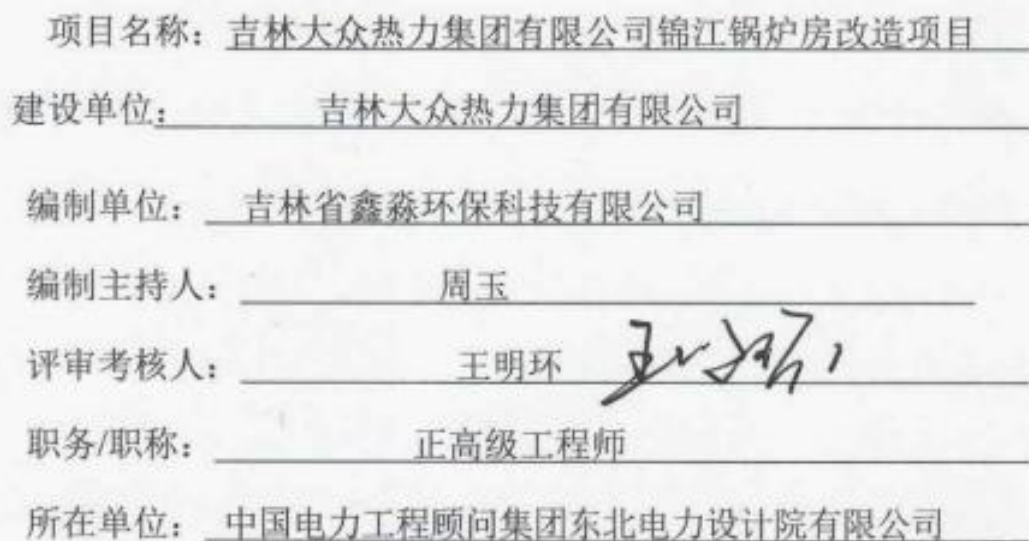 项目名称：吉林大众热力集团有限公司锦江锅炉房改造项目
建设单位：吉林大众热力集团有限公司
编制单位：吉林省鑫淼环保科技有限公司
编制主持人：周玉
评审考核人：王明环
职务/职称：正高级工程师
所在单位：中国电力工程顾问集团东北电力设计院有限公司